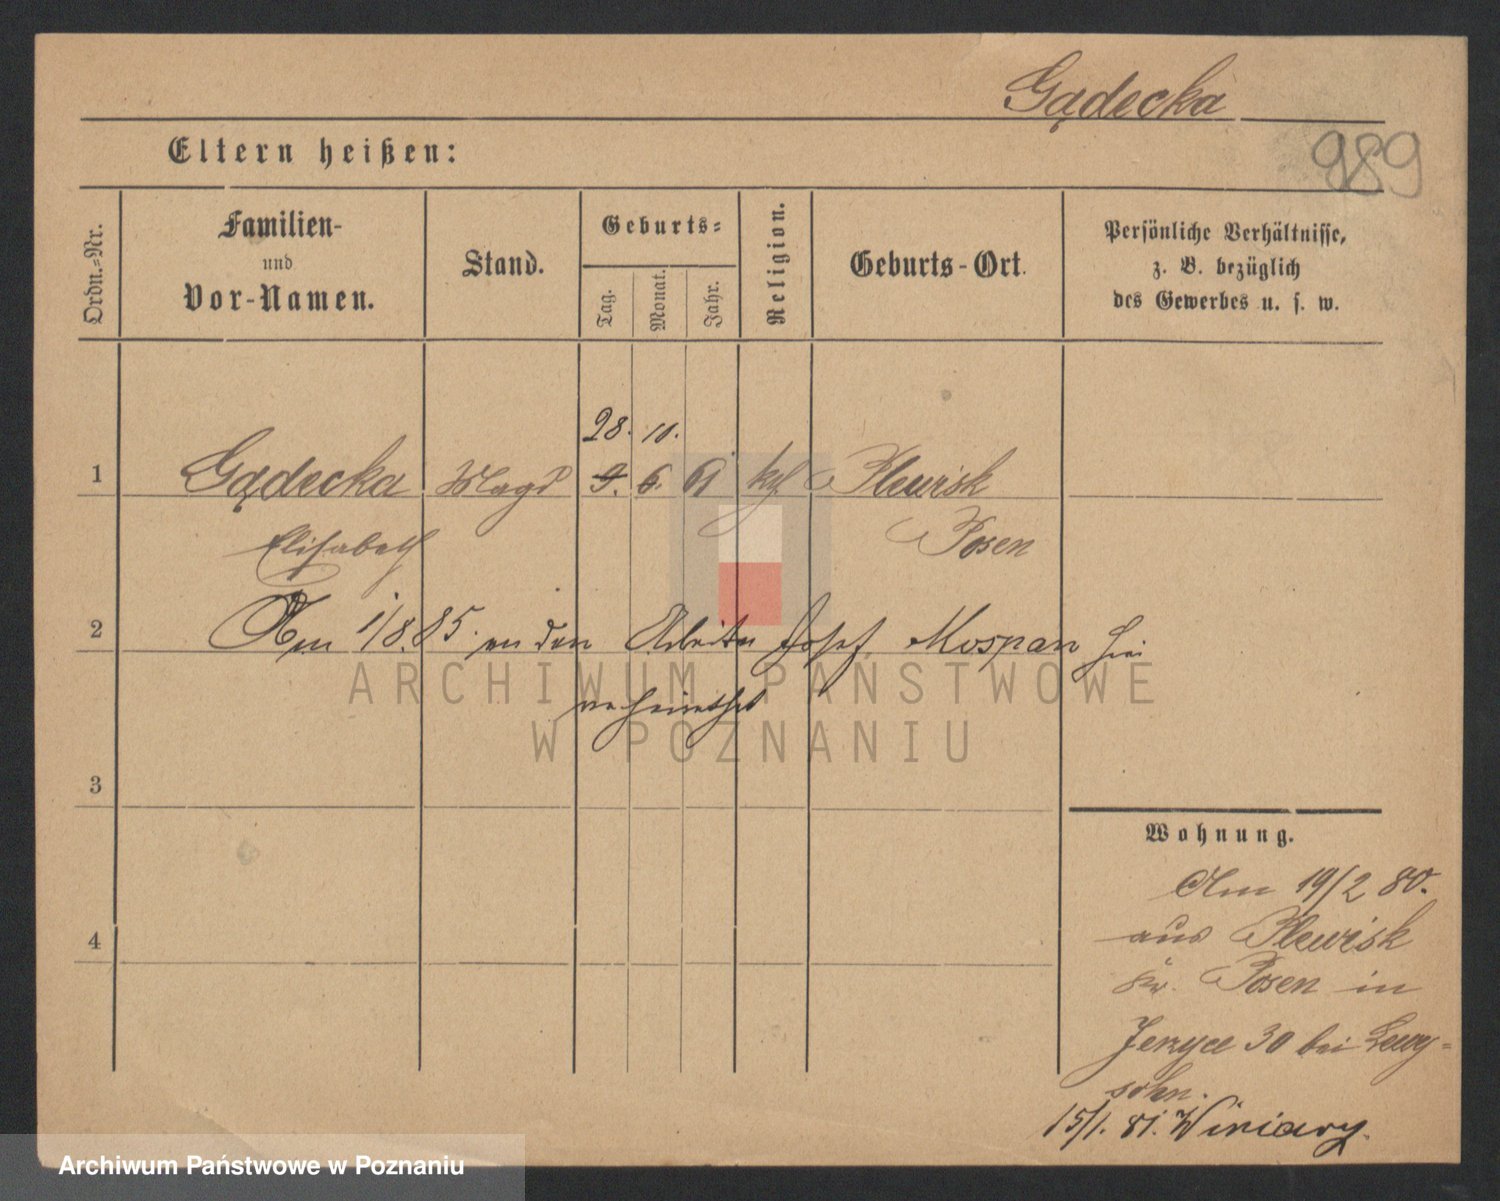 Gądecka
989
Eltern heißen:
Ordn.-Nr.
Familien-
und
Vor-Namen.
Stand.
Geburts-
Tag.
Monat.
Jahr.
Religion.
Geburts-Ort.
Persönliche Verhältnisse,
z. B. bezüglich
des Gewerbes u. s. w.
28. 10.
1 Gądecka Magd 9. 6. 61 kth Plewisk
Elisabeth Posen
2 Am 1/8.85. an den Arbeiter Josef Mospan hier
verheirathet
ARCHIWUM PAŃSTWOWE
W POZNANIU
3
Wohnung.
Am 19/2 80.
aus Plewisk
4
Kr. Posen in
Jerzyce 30 bei Lewy-
sohn.
15/1. 81. Winiary.
Archiwum Państwowe w Poznaniu